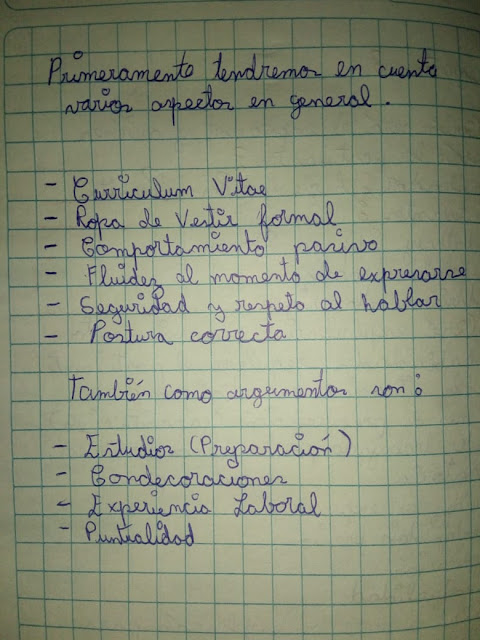 Primeramente tendremos en cuenta
varios aspectos en general.
- Curriculum Vitae
- Ropa de Vestir formal
- Comportamiento pasivo
- Fluidez al momento de expresarse
- Seguridad y respeto al hablar
- Postura correcta
También como argumentos son:
- Estudios (Preparación)
- Condecoraciones
- Experiencia Laboral
- Puntualidad